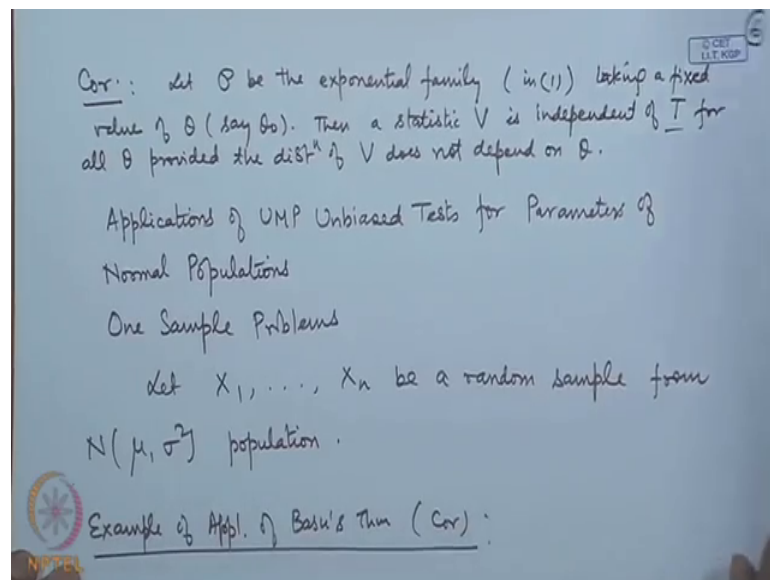 6
© CET
I.I.T. KGP
Cor.: Let 𝒫 be the exponential family (in(1)) taking a fixed
value of θ (say θ0). Then a statistic V is independent of T for
all θ provided the distⁿ of V does not depend on θ.
Applications of UMP Unbiased Tests for Parameters of
Normal Populations
One Sample Problems
Let X1, ..., Xn be a random sample from
N(μ, σ²) population.
Example of Appl. of Basu's Thm (Cor) :
NPTEL